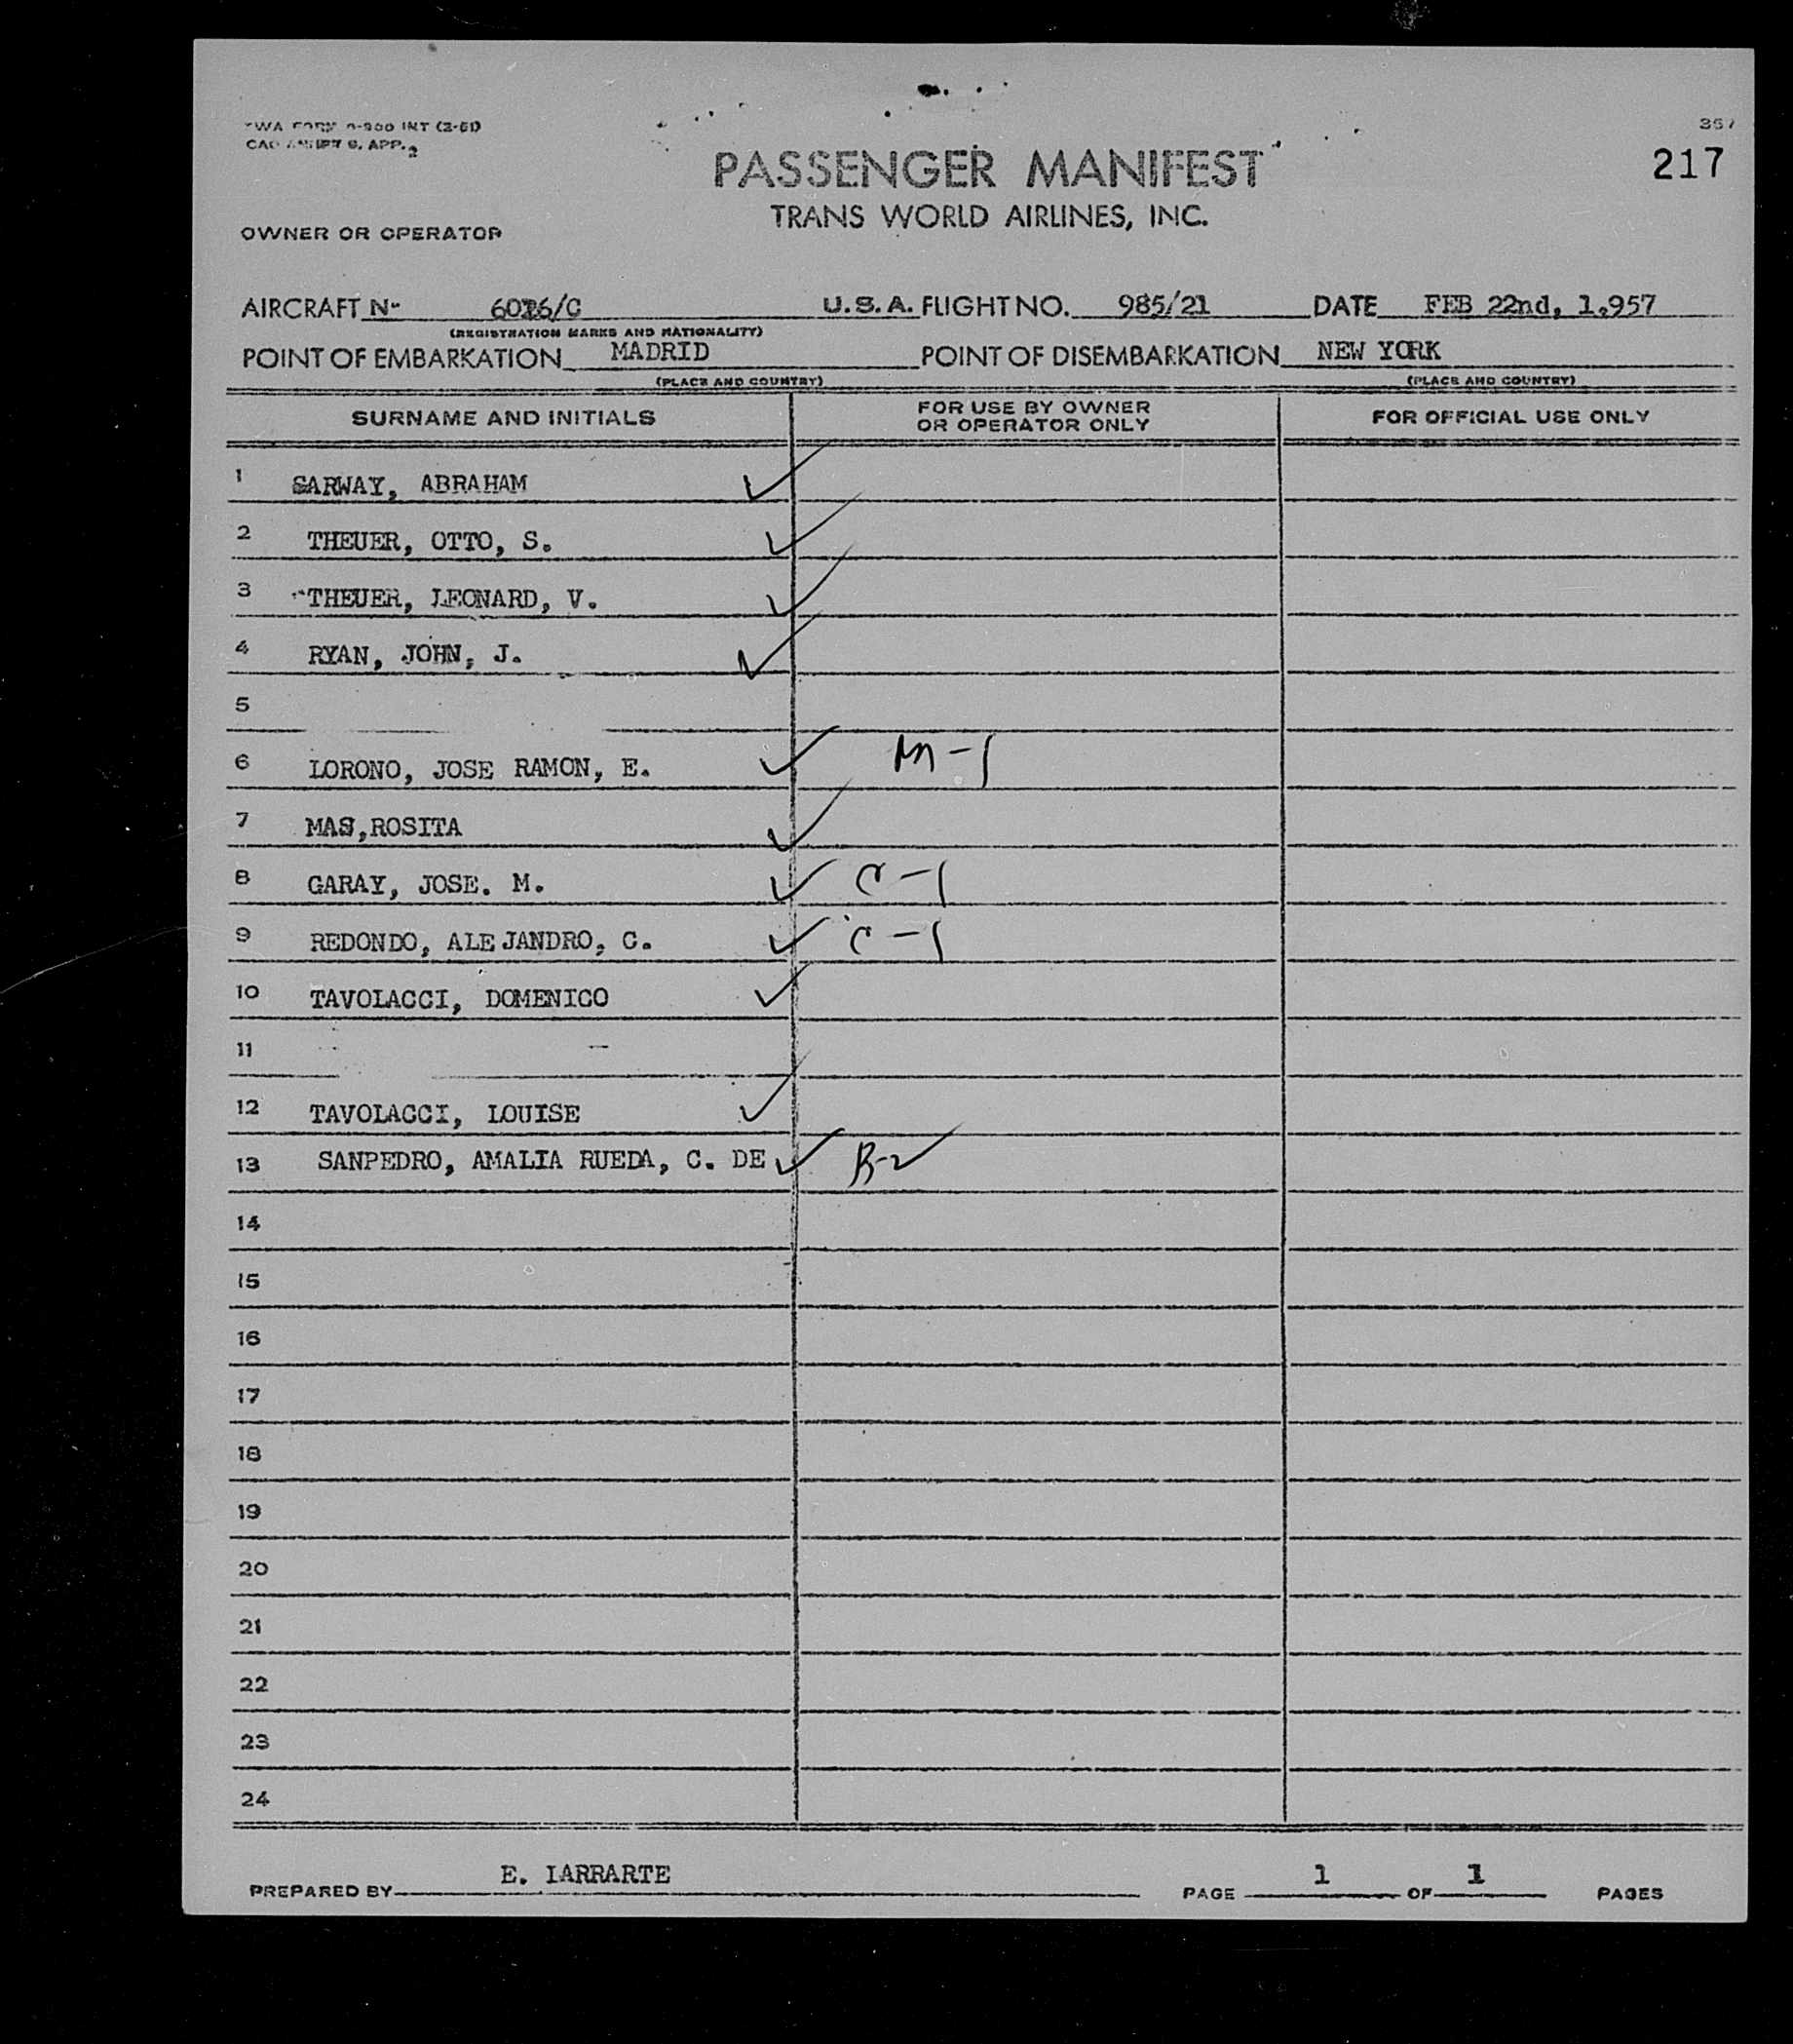 217
PASSENGER MANIFEST
TRANS WORLD AIRLINES, INC.
OWNER OR OPERATOR
AIRCRAFT No U.S.A. FLIGHT NO. 985/21 DATE FEB 22nd, 1.957
(REGISTRATION MARKS AND NATIONALITY)
POINT OF EMBARKATION MADRID POINT OF DISEMBARKATION NEW YORK
(PLACE AND COUNTRY) (PLACE AND COUNTRY)
SURNAME AND INITIALS FOR USE BY OWNER OR OPERATOR ONLY FOR OFFICIAL USE ONLY
1 SARWAY, ABRAHAM
2 THEUER, OTTO, S.
3 THEUER, LEONARD, V.
4 RYAN, JOHN, J.
5
6 LORONO, JOSE RAMON, E. M-1
7 MAS,ROSITA
8 GARAY, JOSE. M. C-1
9 REDONDO, ALEJANDRO, C. C-1
10 TAVOLACCI, DOMENICO
11
12 TAVOLACCI, LOUISE
13 SANPEDRO, AMALIA RUEDA, C. DE B-2
14
15
16
17
18
19
20
21
22
23
24
PREPARED BY E. LARRARTE PAGE 1 OF 1 PAGES